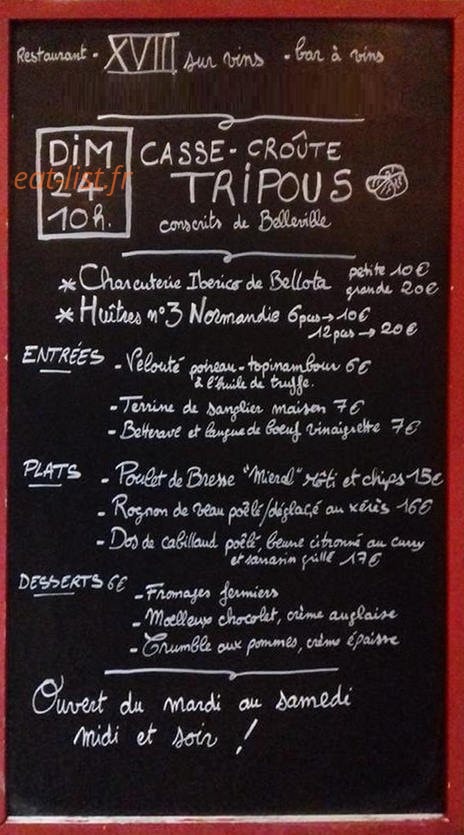 Restaurant - XVIII sur vins - bar à vins
DiM
24
10h.
eat-list.fr
CASSE-CROÛTE
TRiPOUS
conscrits de Belleville
* Charcuterie Iberico de Bellota petite 10€
grande 20€
* Huîtres n°3 Normandie 6pcs → 10€
12pcs → 20€
ENTRÉES - Velouté poireau-topinambour 6€
à l'huile de truffe.
- Terrine de sanglier maison 7€
- Betterave et langue de boeuf vinaigrette 7€
PLATS - Poulet de Bresse "Mieral" rôti et chips 15€
- Rognon de veau poêlé/déglacé au xérès 16€
- Dos de cabillaud poêlé, beurre citronné au curry
et sarrasin grillé 17€
DESSERTS 6€ - Fromages fermiers
- Moelleux chocolat, crème anglaise
- Crumble aux pommes, crème épaisse
Ouvert du mardi au samedi
midi et soir !